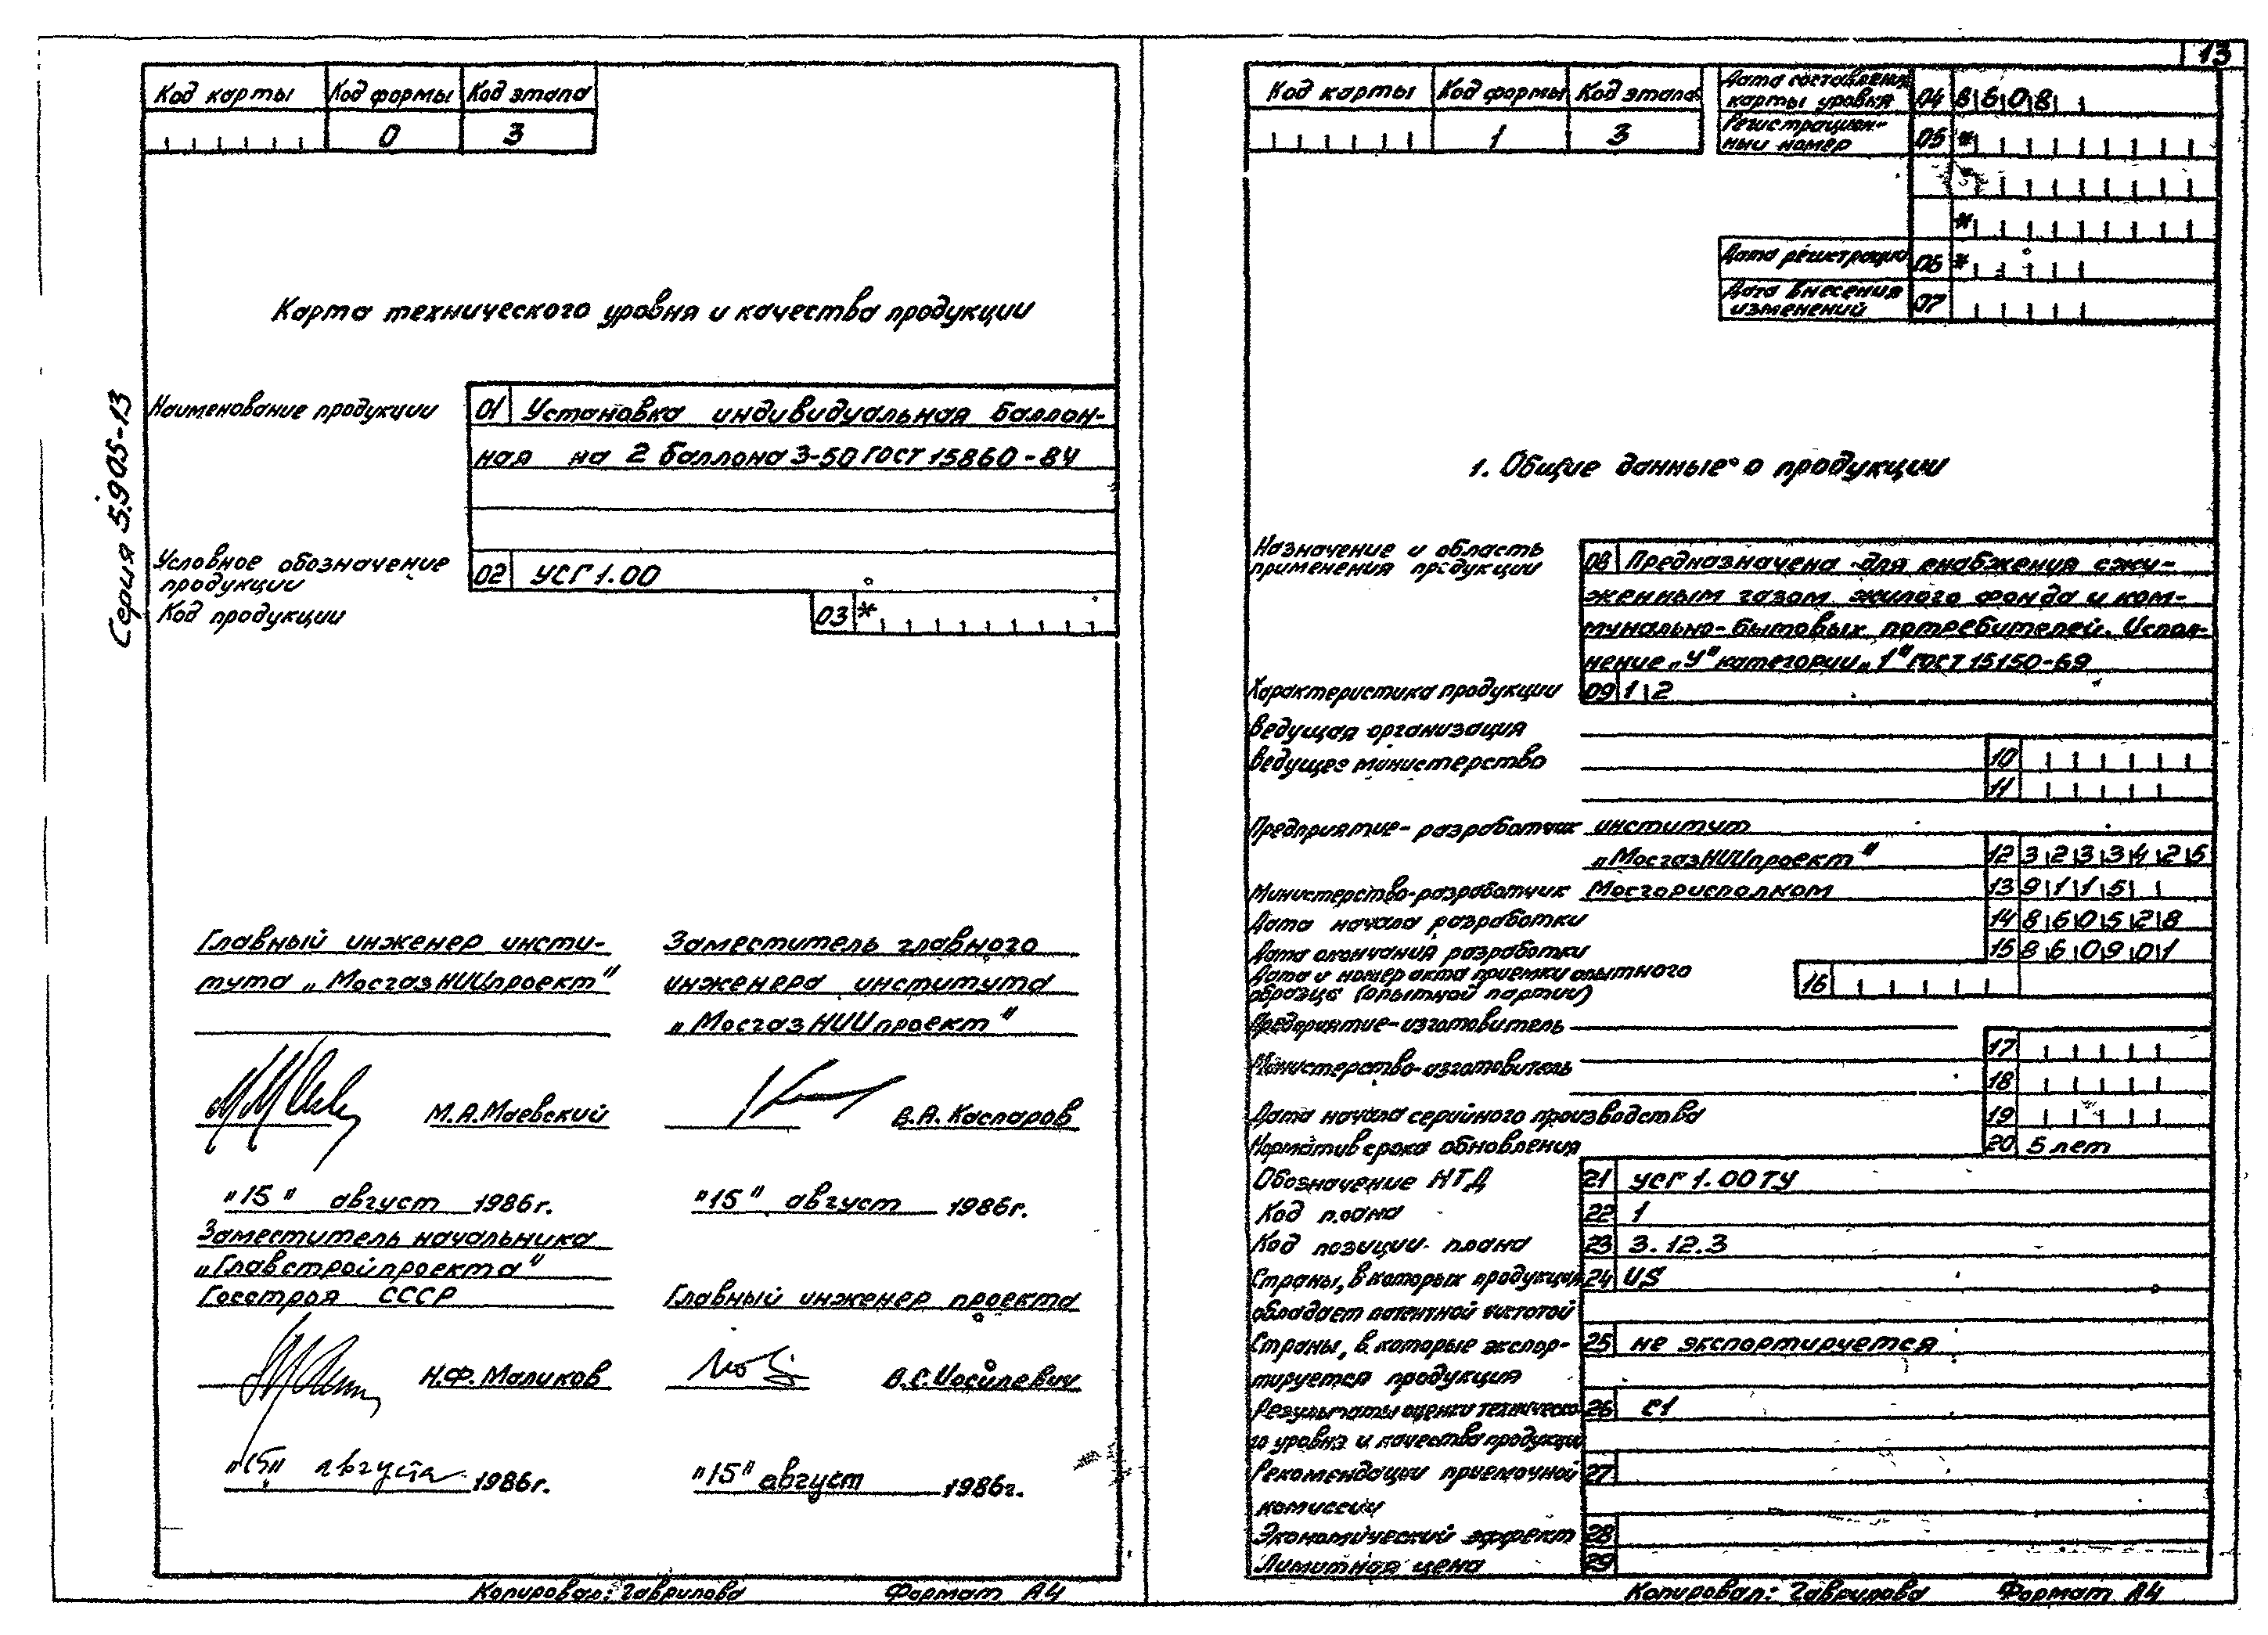 Код карты Код формы Код этапа
0 3
Карта технического уровня и качества продукции
Серия 5.905-13
Наименование продукции 01 Установка индивидуальная баллон-
ная на 2 баллона 3-50 ГОСТ 15860-84
Условное обозначение
продукции 02 УСГ 1.00
Код продукции 03 *
Главный инженер инсти-
тута „МосгазНИИпроект"
М.А.Маевский
"15" август 1986г.
Заместитель главного
инженера института
„МосгазНИИпроект"
В.А. Каспаров
"15" август 1986г.
Заместитель начальника
„Главстройпроекта"
Госстроя СССР
Н.Ф. Маликов
"15" августа 1986г.
Главный инженер проекта
В.С. Иосилевич
"15" август 1986г.
Копировал: Гаврилова Формат А4
13
Код карты Код формы Код этапа
1 3
Дата составления
карты уровня 04 8608
Регистрацион-
ный номер 05 *
*
*
Дата регистрации 06 *
Дата внесения
изменений 07
1. Общие данные о продукции
Назначение и область
применения продукции
08 Предназначена для снабжения сжи-
женным газом жилого фонда и ком-
мунально-бытовых потребителей. Испол-
нение „У" категории „1" ГОСТ 15150-69
Характеристика продукции 09 1 2
Ведущая организация
Ведущее министерство 10
11
Предприятие-разработчик институт
„МосгазНИИпроект" 12 3233425
Министерство-разработчик Мосгорисполком 13 9115
Дата начала разработки 14 860528
Дата окончания разработки 15 860901
Дата и номер акта приемки опытного
образца (опытной партии) 16
Предприятие-изготовитель
17
Министерство-изготовитель
18
Дата начала серийного производства 19
Норматив срока обновления 20 5 лет
Обозначение НТД 21 УСГ 1.00 ТУ
Код плана 22 1
Код позиции плана 23 3.12.3
Страны, в которых продукция 24 US
обладает патентной чистотой
Страны, в которые экспор- 25 не экспортируется
тируется продукция
Результаты оценки техническо- 26 С1
го уровня и качества продукции
Рекомендации приемочной 27
комиссии
Экономический эффект 28
Лимитная цена 29
Копировал: Гаврилова Формат А4